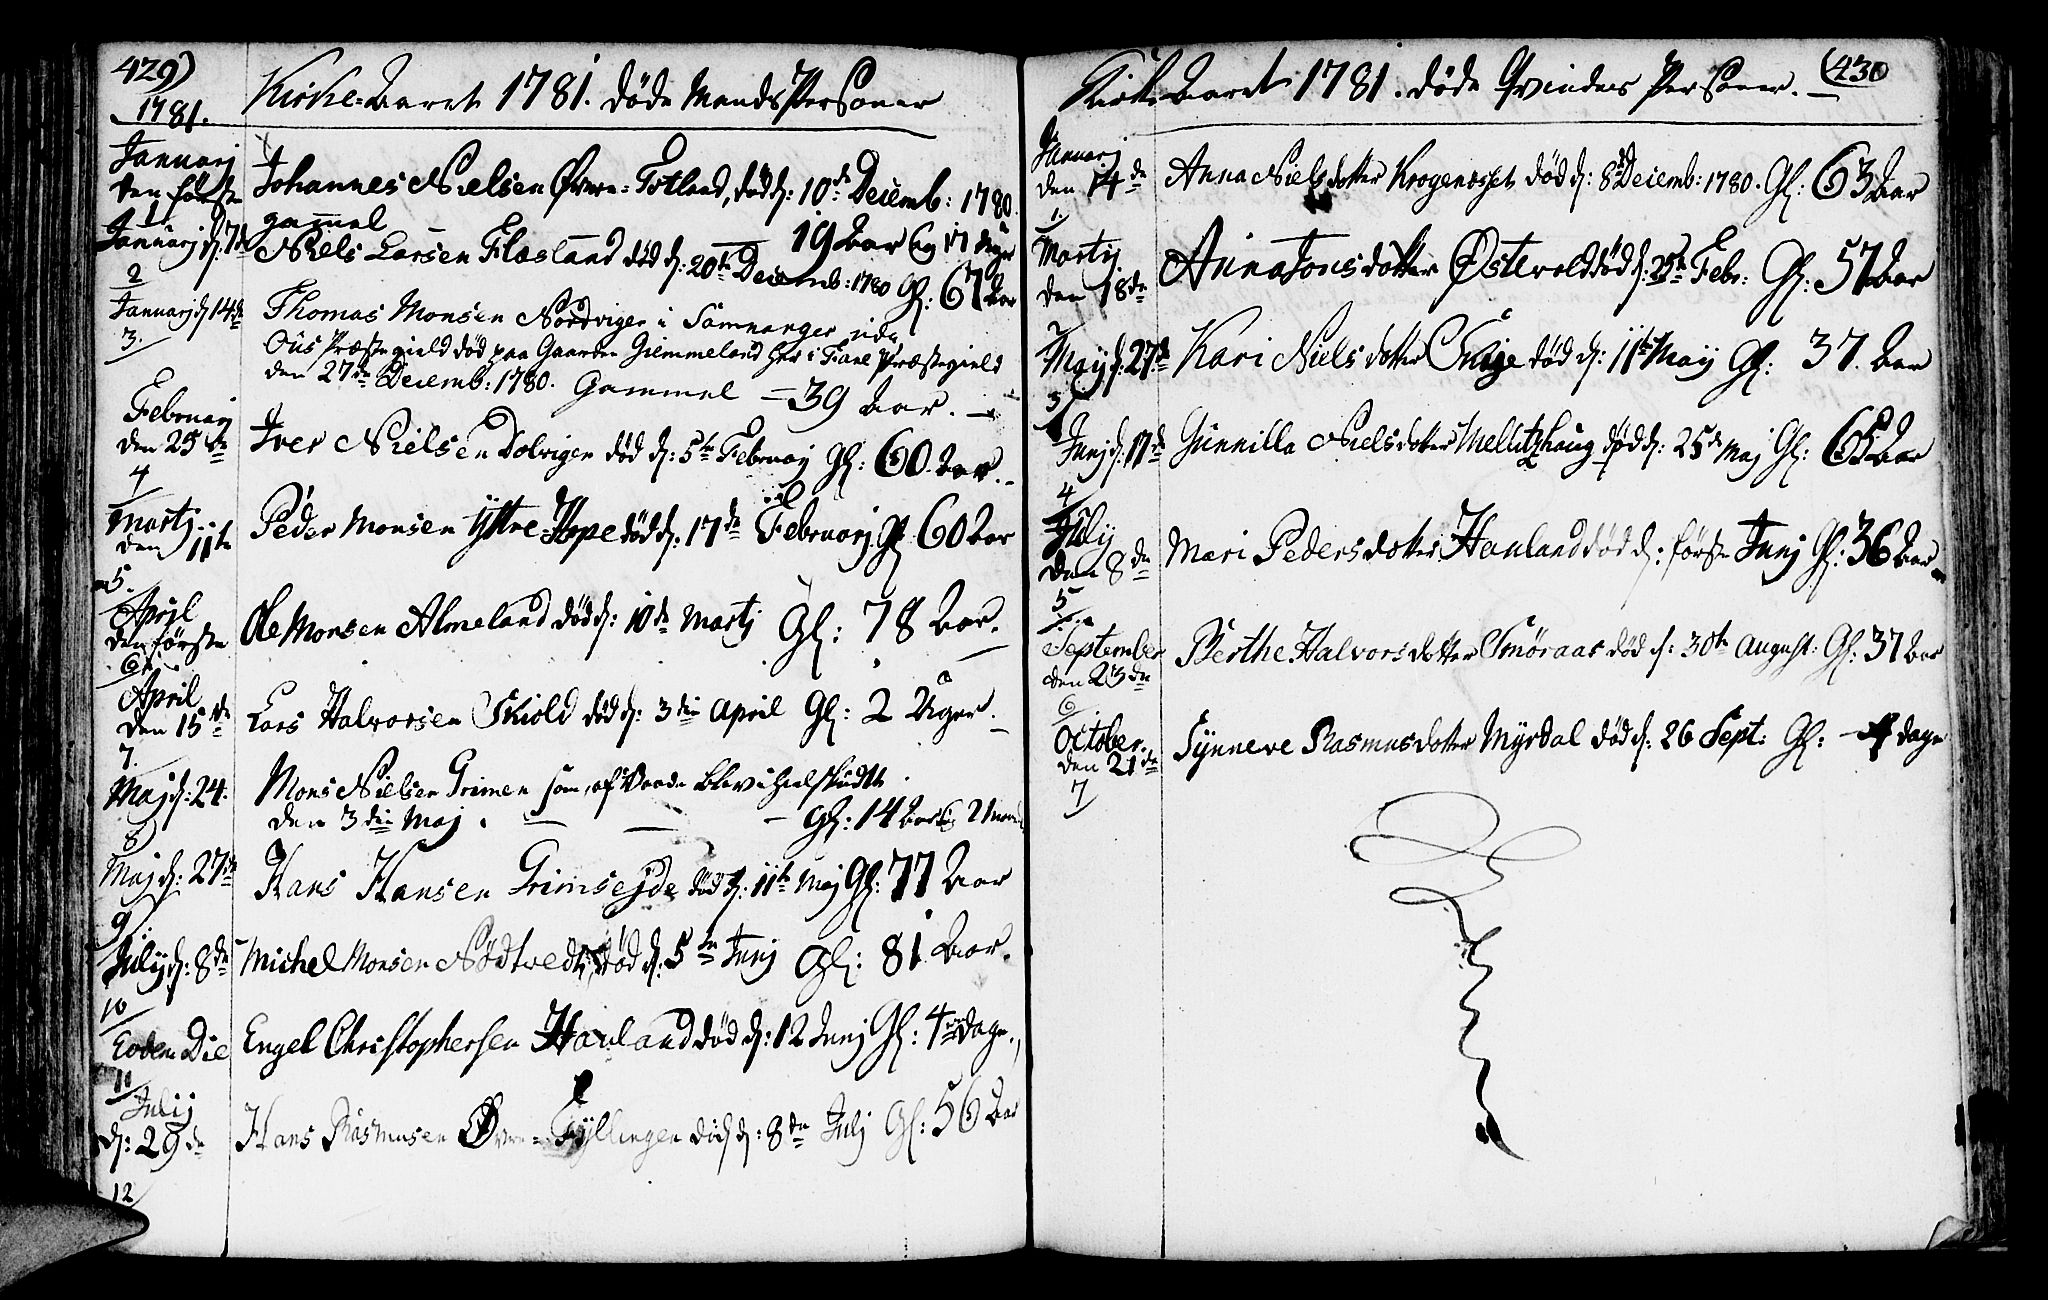 429)
1781.
Kirke-Aaret 1781. døde Mands Personer
Januarj
den første
1
Johannes Nielsen Øvre-Totland, død d: 10de Decemb: 1780.
gammel — 19 Aar og 11 Uger
Januarj d: 7de
2
Niels Larsen Flæsland død d: 20de Decemb: 1780 Gl: 67 Aar
Januarj d 14de
3.
Thomas Monsen Nordvigen i Samnanger udi
Ous Præstegield død paa Gaarden Giemmeland her i Fane Præstegield
den 27de Decemb: 1780. Gammel — 39 Aar. —
Februarj
den 25de
4
Iver Nielsen Dolvigen død d: 5te Februarj Gl: 60 Aar. -
Martj
den 11te
5.
Peder Monsen Yttre-Hope død d: 17de Februarj Gl 60 Aar
April
den første
6
Ole Monsen Almeland død d: 10de Martj Gl: 78 Aar.
April
den 15de
7.
Lars Halvorsen Skiold død d: 3die April Gl: 2 Uger. —
Maj d: 24.
8
Mons Nielsen Grimen som, af Vaade blev ihielskudt
den 3die Maj. — — — Gl: 14 Aar og 2 Maan
Maj d: 27de
9
Hans Hansen Grimsejde død d: 11te Maj Gl: 77 Aar
Julij d: 8de
10
Michel Monsen Nødtvedt, død d: 5te Junj Gl: 81 Aar.
Eodem Die
11
Engel Christophersen Hauland død d: 12 Junj Gl: 4re Dage.
Julij
d: 29de
12
Hans Rasmusen Øvre-Fyllingen død d: 8de Julj Gl: 56 Aar
(430
Kirke-Aaret 1781. døde Qvindes Personer. —
Januarj
den 14de
1
Anna Nielsdotter Krogenæsset død d: 8de Decemb: 1780. Gl: 63 Aar
Martij
den 18de
2
Anna Jonsdotter Østevold død d: 25de Febr: Gl: 57 Aar
Maij d: 27de
3
Kari Nielsdotter Skeje død d: 11te Maij Gl: 37. Aar
Junj d: 17de
4
Gunnilla Nielsdotter Mellitzhaug død d: 25de Maj Gl: 65 Aar
Julij
den 8de
5
Mari Pedersdotter Hauland død d: første Junj Gl: 36 Aar
September
den 23de
6
Berthe Halvorsdotter Smøraas død d: 30te August: Gl: 37 Aar
October
den 21de
7
Synneve Rasmusdotter Myrdal død d: 26 Sept: Gl: — 4 dage